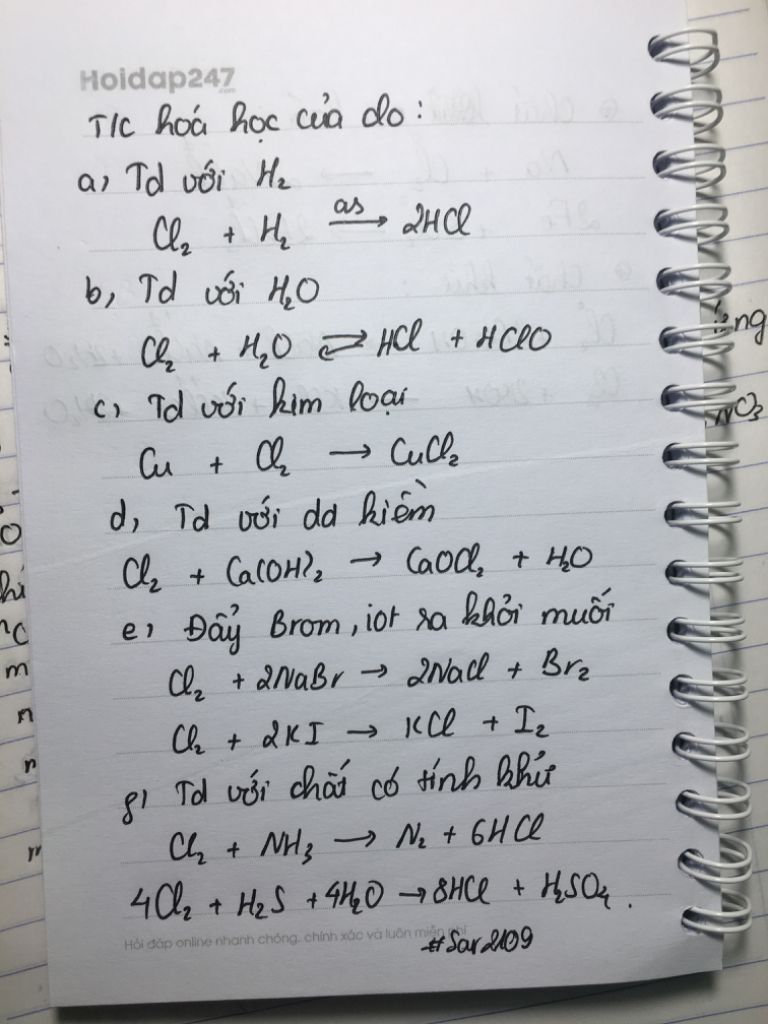 Hoidap247
.com
T/c hoá học của clo:
a, Td với H₂
Cl₂ + H₂ as→ 2HCl
b, Td với H₂O
Cl₂ + H₂O ⇌ HCl + HClO
c, Td với kim loại
Cu + Cl₂ → CuCl₂
d, Td với dd kiềm
Cl₂ + Ca(OH)₂ → CaOCl₂ + H₂O
e, Đẩy Brom, iot ra khỏi muối
Cl₂ + 2NaBr → 2NaCl + Br₂
Cl₂ + 2KI → KCl + I₂
g, Td với chất có tính khử
Cl₂ + NH₃ → N₂ + 6HCl
4Cl₂ + H₂S + 4H₂O → 8HCl + H₂SO₄.
Hỏi đáp online nhanh chóng, chính xác và luôn miễn phí
#Sar2109